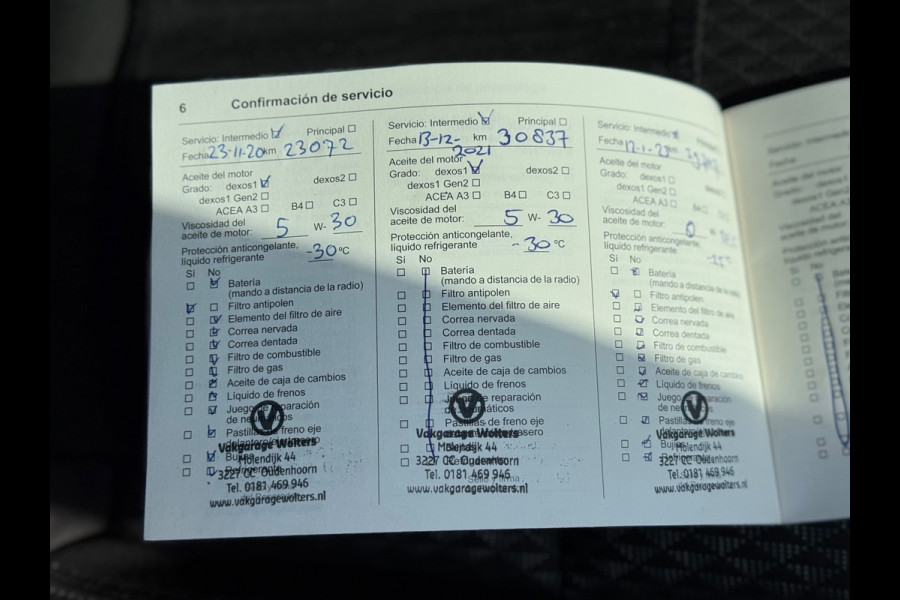 6 Confirmación de servicio
Servicio: Intermedio Principal
Fecha 23-11-20 km 23072
Aceite del motor
Grado: dexos1 dexos2
dexos1 Gen2
ACEA A3 B4 C3
Viscosidad del
aceite de motor: 5 W- 30
Protección anticongelante,
líquido refrigerante -30 °C
Sí No
Batería
(mando a distancia de la radio)
Filtro antipolen
Elemento del filtro de aire
Correa nervada
Correa dentada
Filtro de combustible
Filtro de gas
Aceite de caja de cambios
Líquido de frenos
Juego de reparación
de neumáticos
Pastillas de freno eje
Vakgarage Wolters
Molendijk 44
3227 CC Oudenhoorn
Tel. 0181 469 946
www.vakgaragewolters.nl
Servicio: Intermedio Principal
Fecha 13-12-2021 km 30837
Aceite del motor
Grado: dexos1 dexos2
dexos1 Gen2
ACEA A3 B4 C3
Viscosidad del
aceite de motor: 5 W- 30
Protección anticongelante,
líquido refrigerante -30 °C
Sí No
Batería
(mando a distancia de la radio)
Filtro antipolen
Elemento del filtro de aire
Correa nervada
Correa dentada
Filtro de combustible
Filtro de gas
Aceite de caja de cambios
Líquido de frenos
Juego de reparación
de neumáticos
Pastillas de freno eje
Vakgarage Wolters
Molendijk 44
3227 CC Oudenhoorn
Tel. 0181 469 946
www.vakgaragewolters.nl
Servicio: Intermedio
Fecha 12-1-23
Aceite del motor
Grado: dexos1
dexos1 Gen2
ACEA A3
Viscosidad del
aceite de motor: 0
Protección anticongelante,
líquido refrigerante
Sí No
Batería
(mando a distancia de la radio)
Filtro antipolen
Elemento del filtro de aire
Correa nervada
Correa dentada
Filtro de combustible
Filtro de gas
Aceite de caja de cambios
Líquido de frenos
Juego de reparación
de neumáticos
Pastillas de freno eje
Vakgarage Wolters
Molendijk 44
3227 CC Oudenhoorn
Tel. 0181 469 946
www.vakgaragewolters.nl